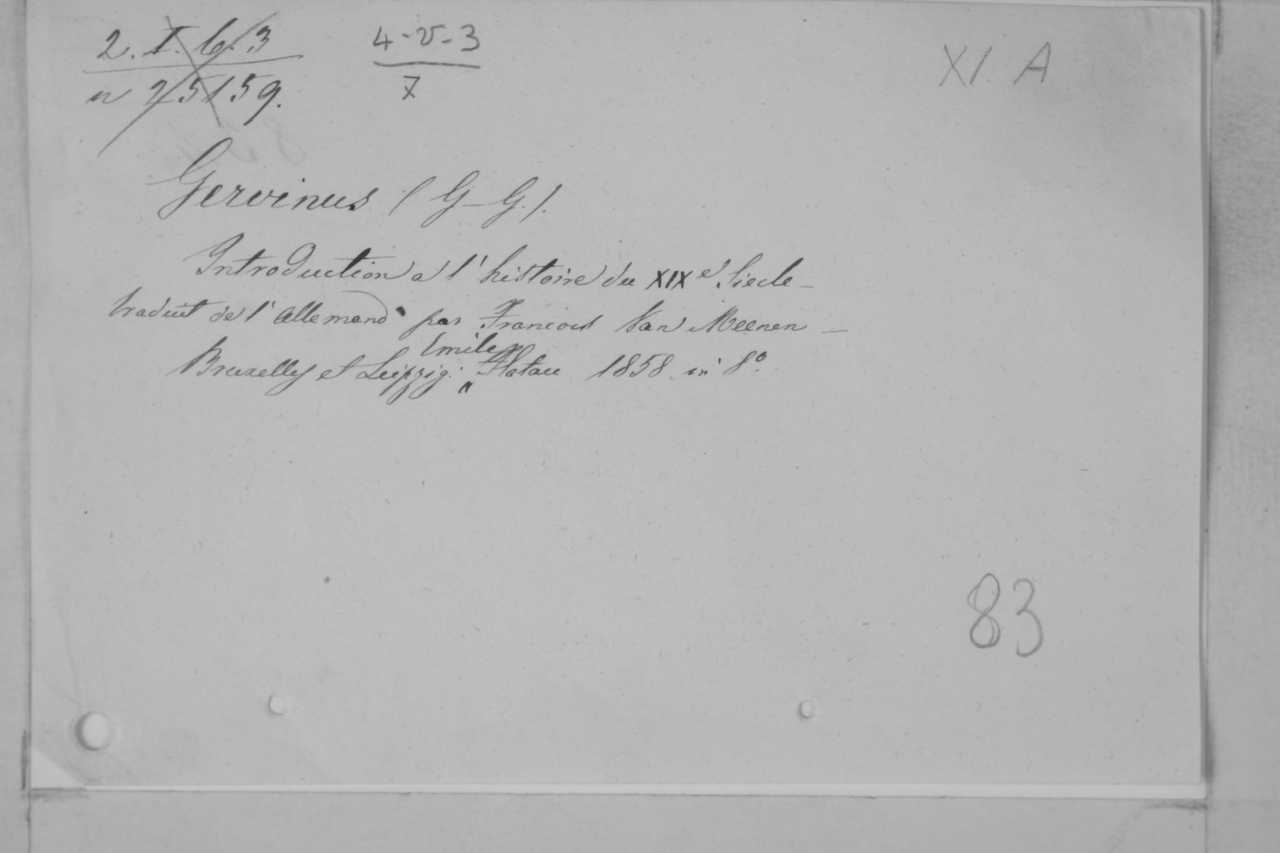 2. I. 6. 3
n 25159.
4-V-3
7
XI A
Gervinus (G-G.).
Introduction a l'histoire du XIXe Siecle -
traduit de l'Allemand par Francois Van Meenen -
Bruxelles et Leipzig. Emile Flatau 1858 in 8º.
83